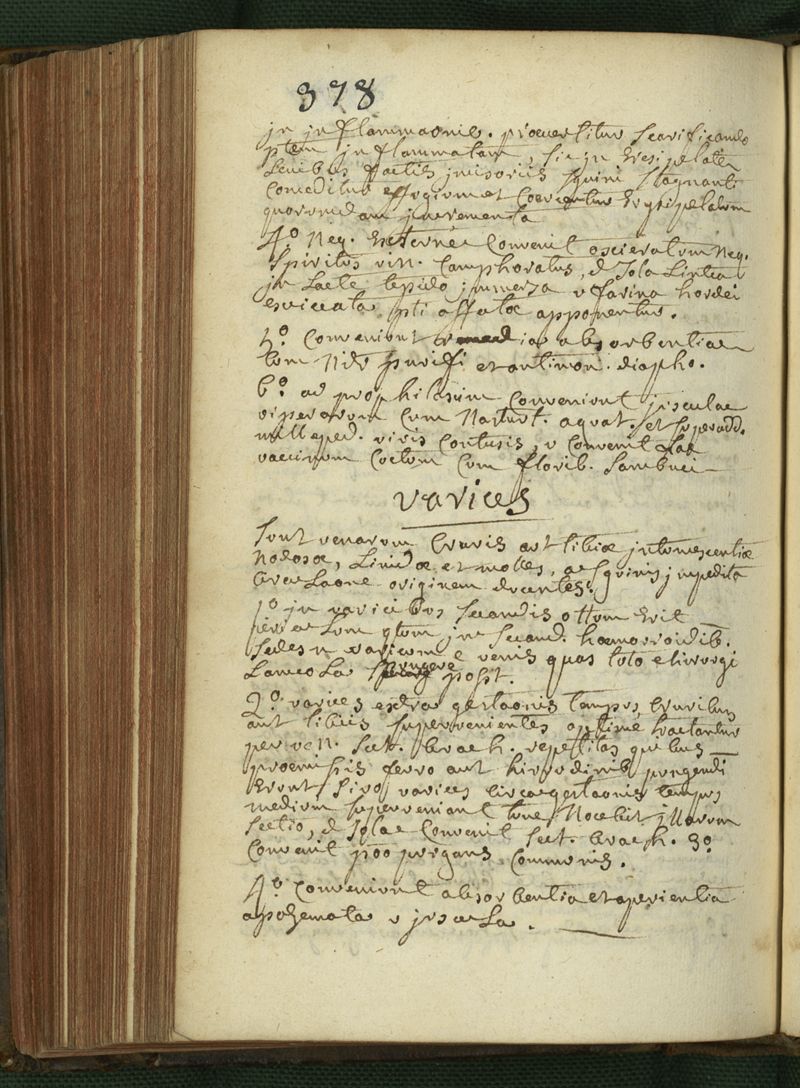 378
in inflammaone. praevertitur scarificando
ptem inflammatam, sic in Eresipelate
Levibus factis incisoriis sguini stagnanti
Conceditur effugium et Coercentur Erysipelatum
quorumdam incrementa
4.o Neq. Externe Convenit oscicratum Neq.
Spiritus vin. Camphoratus, d Sola Lintea
in Lacte tepido immersa v farina hordei
exsiccata pti affatae apponentur.
5.o Conveniunt remedia absorbentia
tum Nitr purifi et antimon. diapho.
6.o ad prophilaxim Conveniunt jusculae
viperarum Cum Nasturt. aquat. et superadd.
milleped. vivis Contusis, v Convenit Lac
vaccinum Coctum Cum florib. Sambuci
varices
Sunt venarum Cruris aut tibiae intumescentiae
Nodosae, Lividae et molles, a sguinis impedita
Circulaone originem ducentes.
1.o in varicibus secandis ottum Erit
periculum qtum in secand. haemorroidib.
venis quas toto chirurgi
Lanceola pungere post.
2.o varices extra gestaonis tempus, Cruribus
aut tibiis supervenientes optime tractantur
per ven. Sect. Brach. repetitas quibus
praemissis ferro aut hirudinib pungendi
Erunt Sivo varices circa gestaonis tempus
medium superveniant tunc Nocebit illarum
Sectio, d Solae Convenit Sect. Brach. 3.o
Convenit poo purgans Communis.
4.o Conveniunt absorbentia et aperientia
apozemata v juscula.